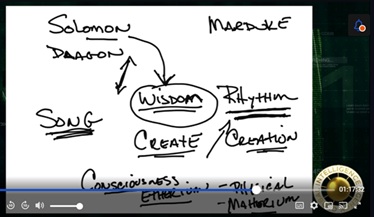 SOLOMON MARDUKE
DRAGON
WISDOM RHYTHM
SONG
CREATE CREATION
CONSCIOUSNESS
ETHERIUM - PHYSICAL
- MATTERIUM
INTELLIGENCE
01:17:32